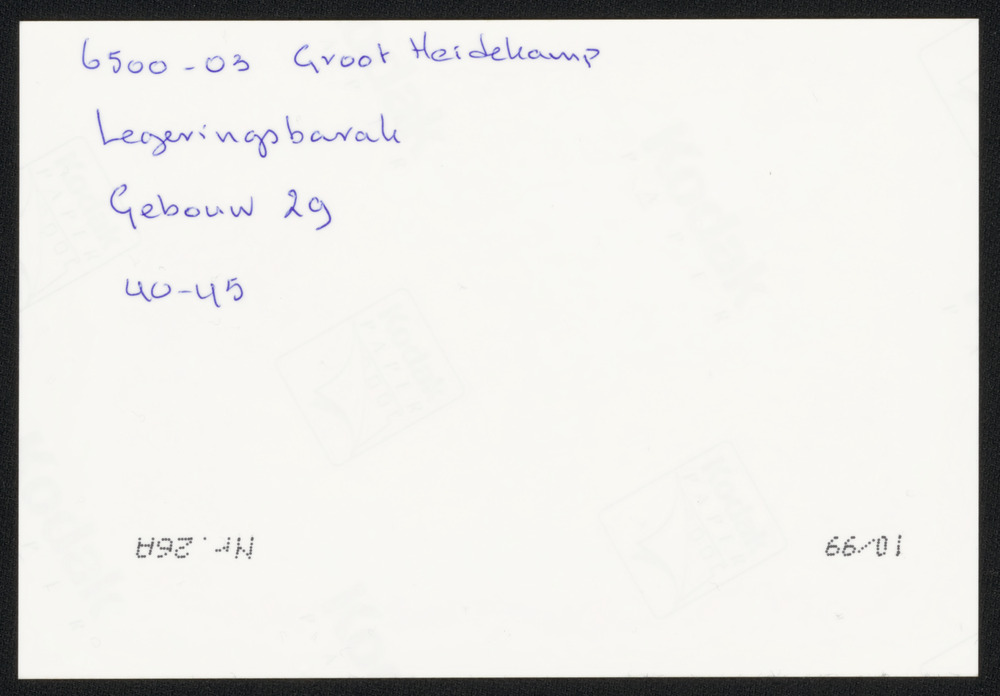 6500-03 Groot Heidekamp
Legeringsbarak
Gebouw 29
40-45
Nr. 26A
10/99
Kodak